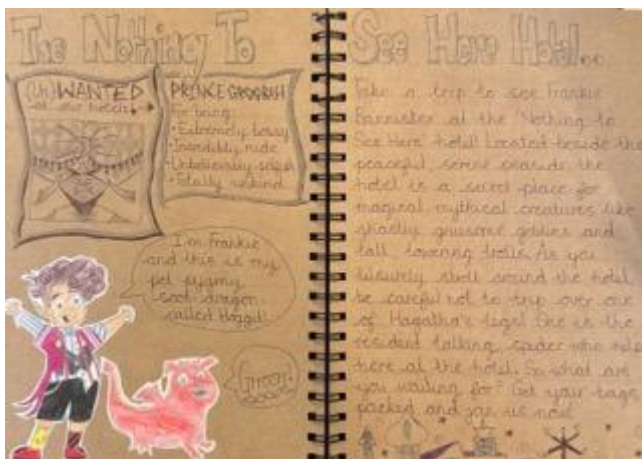 The Nothing To
(Un)WANTED
at our hotel!
PRINCE GROGBAH
For being:
• Extremely bossy
• Incredibly rude
• Unbelievably selfish
• Totally unkind
I'm Frankie
and this is my
pet pygmy
soot-dragon
called Hoggit!
See Here Hotel...
Take a trip to see Frankie
Banister at the 'Nothing to
See Here' hotel! Located beside the
peaceful, serene seaside the
hotel is a secret place for
magical, mythical creatures like
ghastly, gruesome goblins and
tall, towering trolls. As you
leisurely stroll around the hotel,
be careful not to trip over one
of Hagatha's legs! She is the
resident talking spider who
here at the hotel. So what are
you waiting for? Get your bags
packed and join us now!